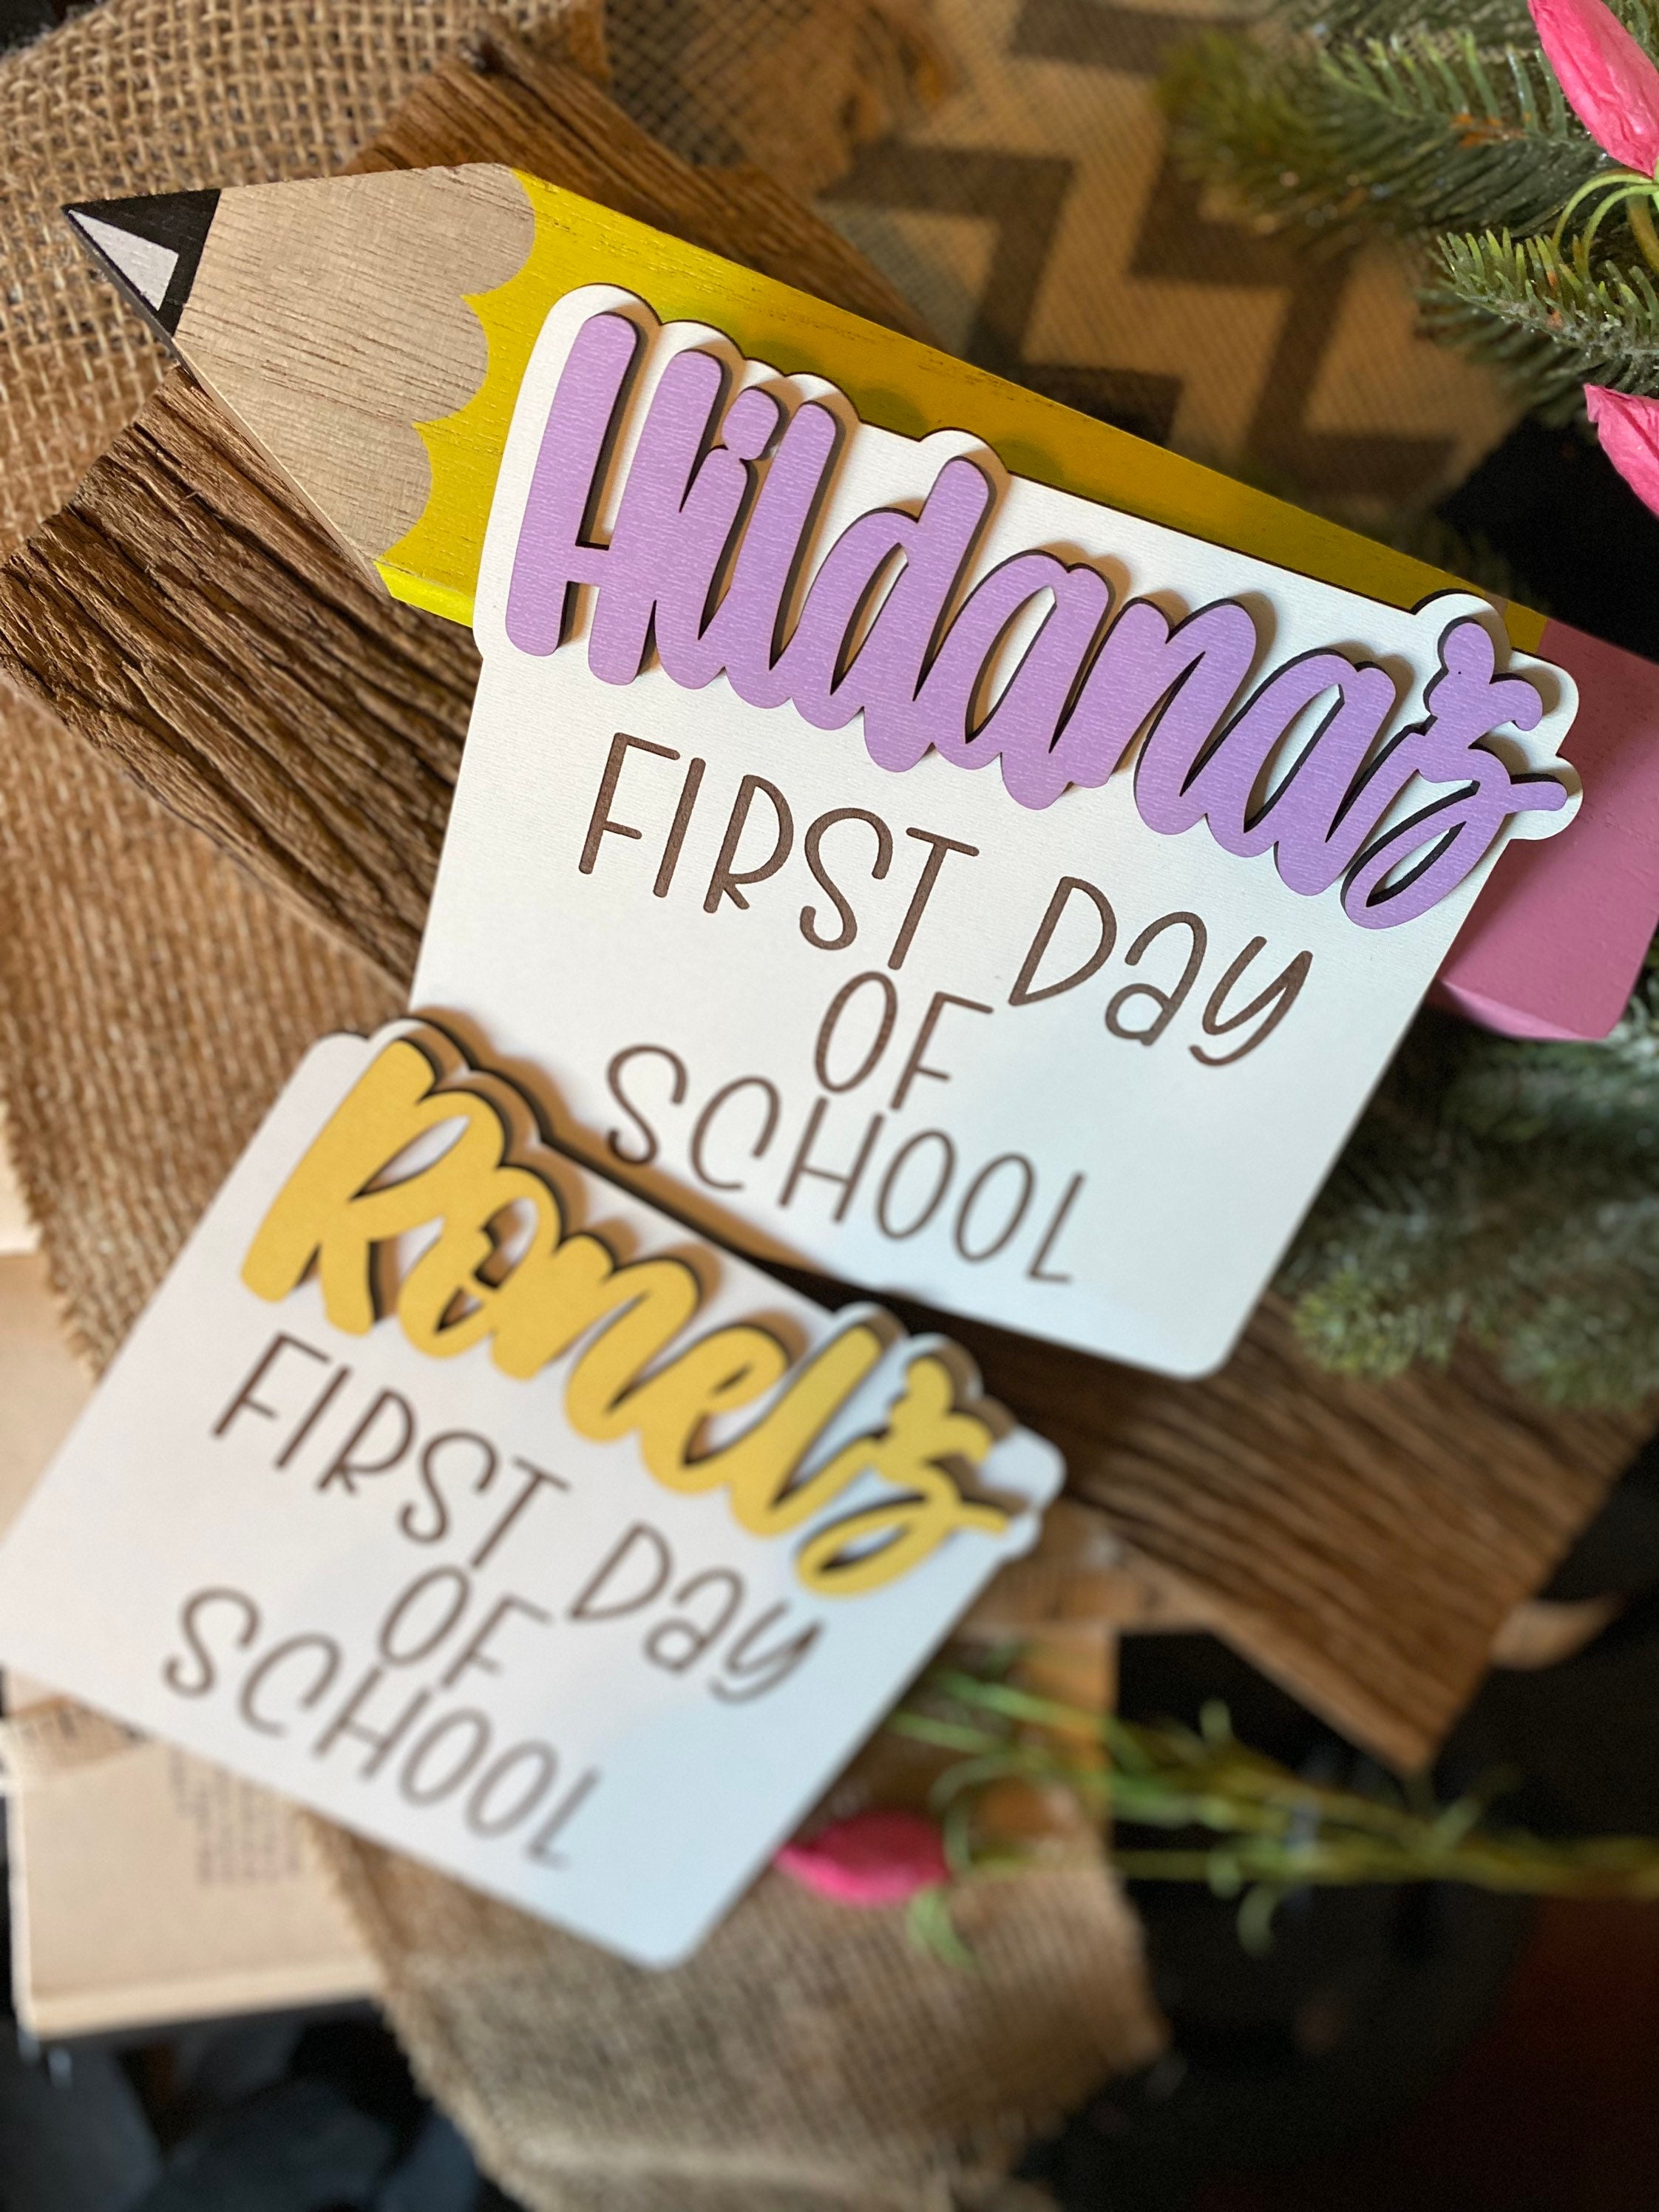 Hildana's
FIRST Day
OF
SCHOOL
Ronel's
FIRST Day
OF
SCHOOL